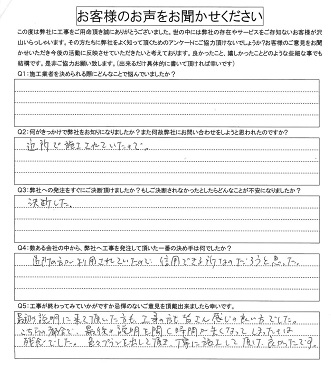 お客様のお声をお聞かせください
この度は弊社に工事をご用命頂き誠にありがとうございました。世の中には弊社の存在やサービスをご存知ないお客様が沢
山いらっしゃいます。その方たちに弊社をよく知って頂くためのアンケートにご協力頂けないでしょうか?お客様のご意見をお聞
かせいただき今後の活動に反映させていただきたいと考えております。良かったこと、嬉しかったことどのような些細な事でも
結構です。是非ご協力お願い致します。(出来るだけ具体的に書いて頂ければ幸いです)
Q1:施工業者を決められる際にどんなことで悩んでいましたか?
Q2:何がきっかけで弊社をお知りになりましたか?また何故弊社にお問い合わせをしようと思われたのですか?
近所で施工されていたので。
Q3:弊社への発注をすぐにご決断頂けましたか?もしご決断されなかったとしたらどんなことが不安になりましたか?
決断した。
Q4:数ある会社の中から、弊社へ工事を発注して頂いた一番の決め手は何でしたか?
近所の方が利用されていたので、信用できる所なのだろうと思った。
Q5:工事が終わってみていかがですか忌憚のないご意見を頂戴出来ましたら幸いです。
最初説明に来て頂いた方も、工事の方も皆さん感じの良い方でした。
こちらの都合で、最後の説明を聞く時間が無くなってしまった事は
残念でした。色々プランを出して頂き、丁寧に施工して頂け、良かったです。